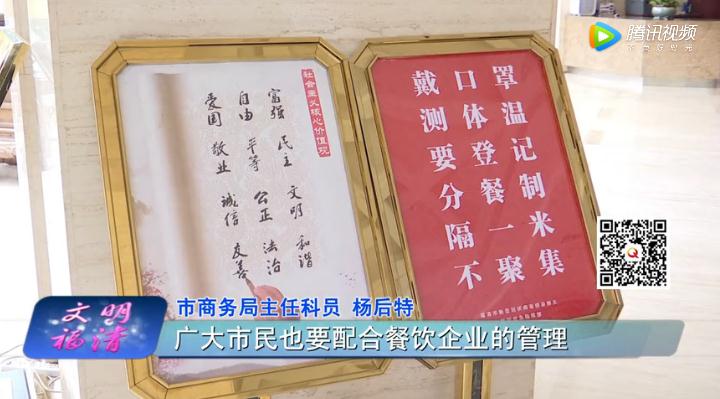 腾讯视频
不负好时光
社会主义核心价值观
富强 民主 文明 和谐
自由 平等 公正 法治
爱国 敬业 诚信 友善
戴口罩
测体温
要登记
分餐制
隔一米
不聚集
文明
福清
市商务局主任科员 杨后特
广大市民也要配合餐饮企业的管理